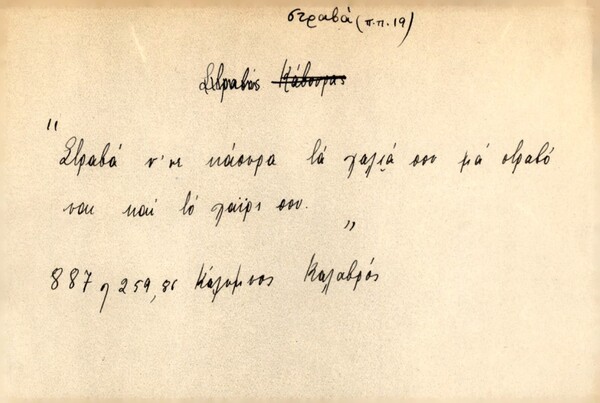 στραβά (π.π. 19)
Στραβός Κάβουρας
"Στραβά ν' νι κάουρα τά χαλιά σου μά στραβό
ναι καί τό χαΐρι σου."
887, 259, Κάλυμνος Καλαβρός